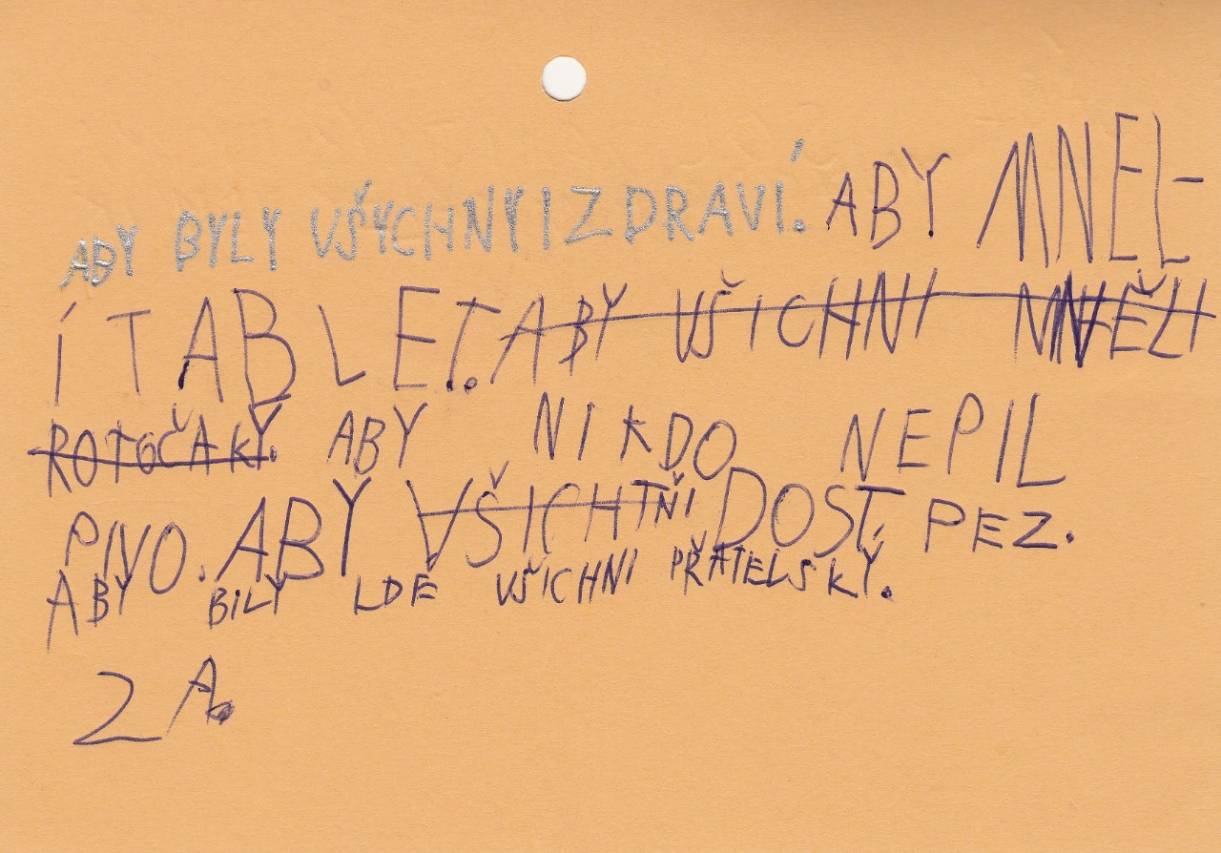 ABY BYLY VŠYCHNYI ZDRAVÍ. ABY MNEL-
Í TABLET. ABY VŠICHNI MNĚLI
ROTOČAKÝ. ABY NIKDO NEPIL
PIVO. ABY VŠICHTŇI DOST PEZ.
ABY BILY LDÉ VŠICHNI PŘÁTELSKÝ.
2 A.